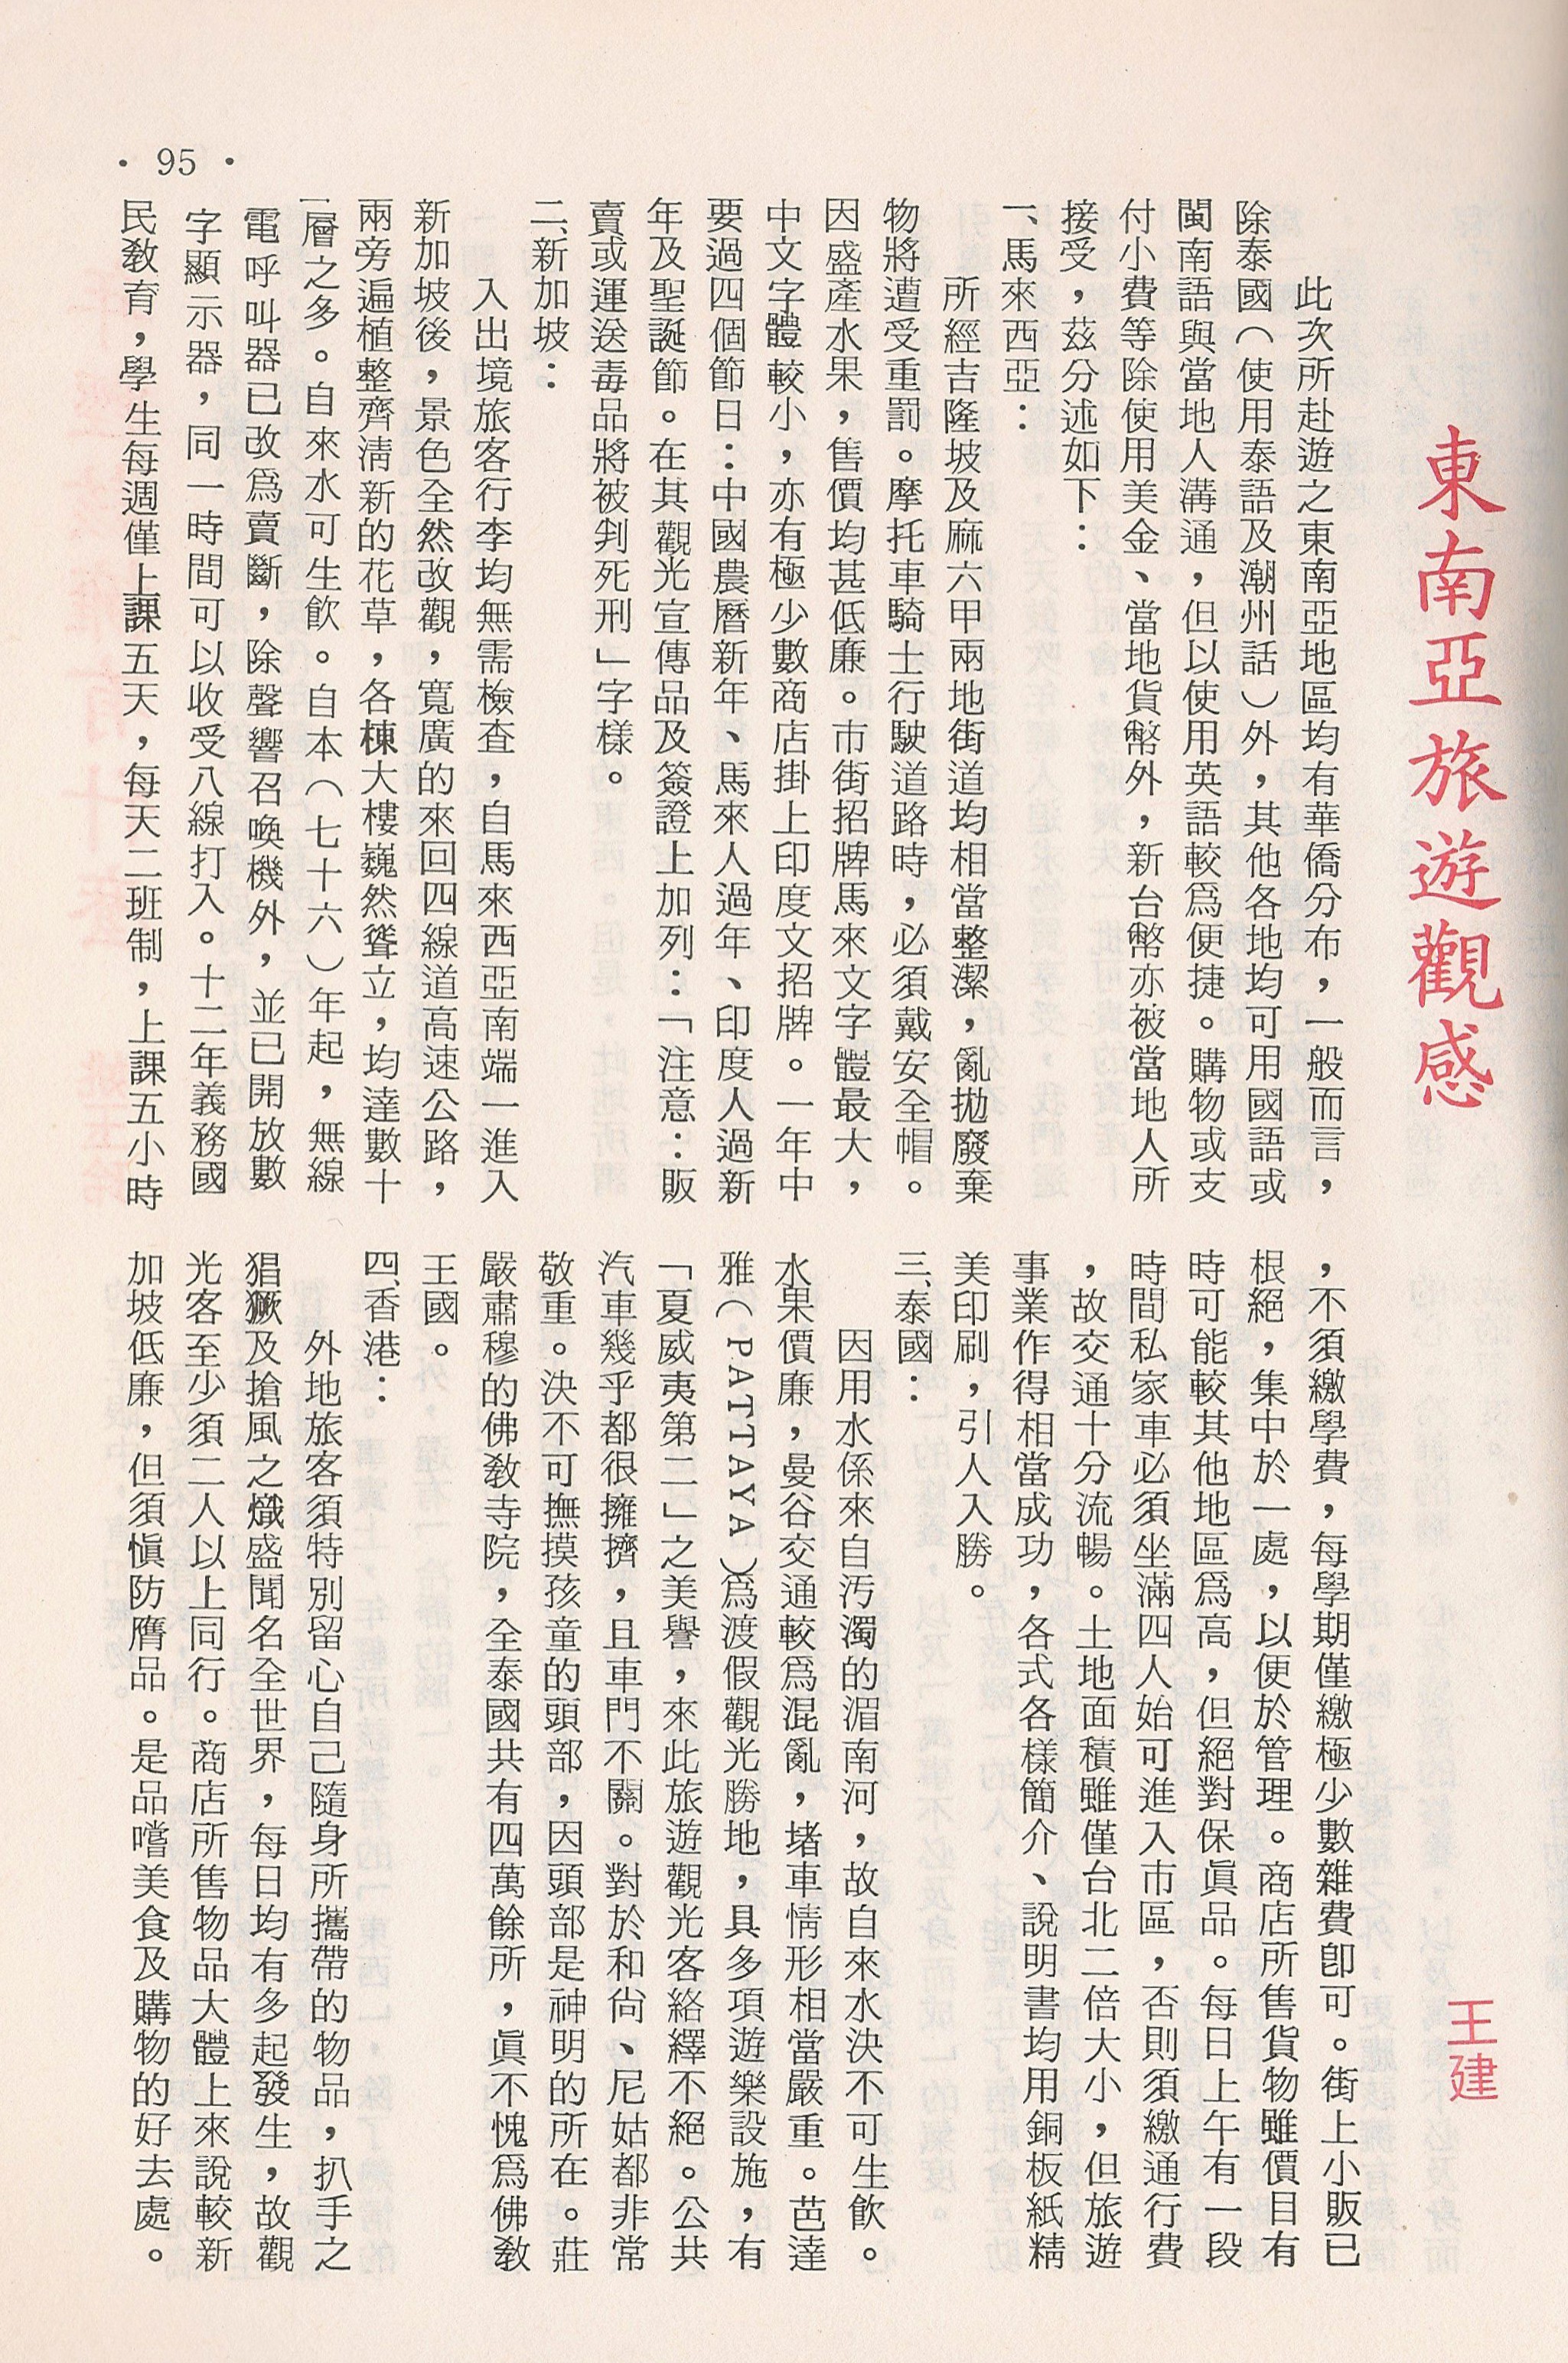 東南亞旅遊觀感
王建
此次所赴遊之東南亞地區均有華僑分布，一般而言，
除泰國（使用泰語及潮州話）外，其他各地均可用國語或
閩南語與當地人溝通，但以使用英語較爲便捷。購物或支
付小費等除使用美金、當地貨幣外，新台幣亦被當地人所
接受，茲分述如下：
一、馬來西亞：
所經吉隆坡及麻六甲兩地街道均相當整潔，亂拋廢棄
物將遭受重罰。摩托車騎士行駛道路時，必須戴安全帽。
因盛產水果，售價均甚低廉。市街招牌馬來文字體最大，
中文字體較小，亦有極少數商店掛上印度文招牌。一年中
要過四個節日：中國農曆新年、馬來人過年、印度人過新
年及聖誕節。在其觀光宣傳品及簽證上加列：「注意：販
賣或運送毒品將被判死刑」字樣。
二、新加坡：
入出境旅客行李均無需檢查，自馬來西亞南端一進入
新加坡後，景色全然改觀，寬廣的來回四線道高速公路，
兩旁遍植整齊清新的花草，各棟大樓巍然聳立，均達數十
層之多。自來水可生飲。自本（七十六）年起，無線
電呼叫器已改爲賣斷，除聲響召喚機外，並已開放數
字顯示器，同一時間可以收受八線打入。十二年義務國
民教育，學生每週僅上課五天，每天二班制，上課五小時
，不須繳學費，每學期僅繳極少數雜費卽可。街上小販已
根絕，集中於一處，以便於管理。商店所售貨物雖價目有
時可能較其他地區爲高，但絕對保眞品。每日上午有一段
時間私家車必須坐滿四人始可進入市區，否則須繳通行費
，故交通十分流暢。土地面積雖僅台北二倍大小，但旅遊
事業作得相當成功，各式各樣簡介、說明書均用銅板紙精
美印刷，引人入勝。
三、泰國：
因用水係來自污濁的湄南河，故自來水決不可生飲。
水果價廉，曼谷交通較爲混亂，堵車情形相當嚴重。芭達
雅（PATTAYA）爲渡假觀光勝地，具多項遊樂設施，有
「夏威夷第二」之美譽，來此旅遊觀光客絡繹不絕。公共
汽車幾乎都很擁擠，且車門不關。對於和尙、尼姑都非常
敬重。決不可撫摸孩童的頭部，因頭部是神明的所在。莊
嚴肅穆的佛教寺院，全泰國共有四萬餘所，眞不愧爲佛教
王國。
四、香港：
外地旅客須特別留心自己隨身所攜帶的物品，扒手之
猖獗及搶風之熾盛聞名全世界，每日均有多起發生，故觀
光客至少須二人以上同行。商店所售物品大體上來說較新
加坡低廉，但須愼防贋品。是品嚐美食及購物的好去處。
• 95 •